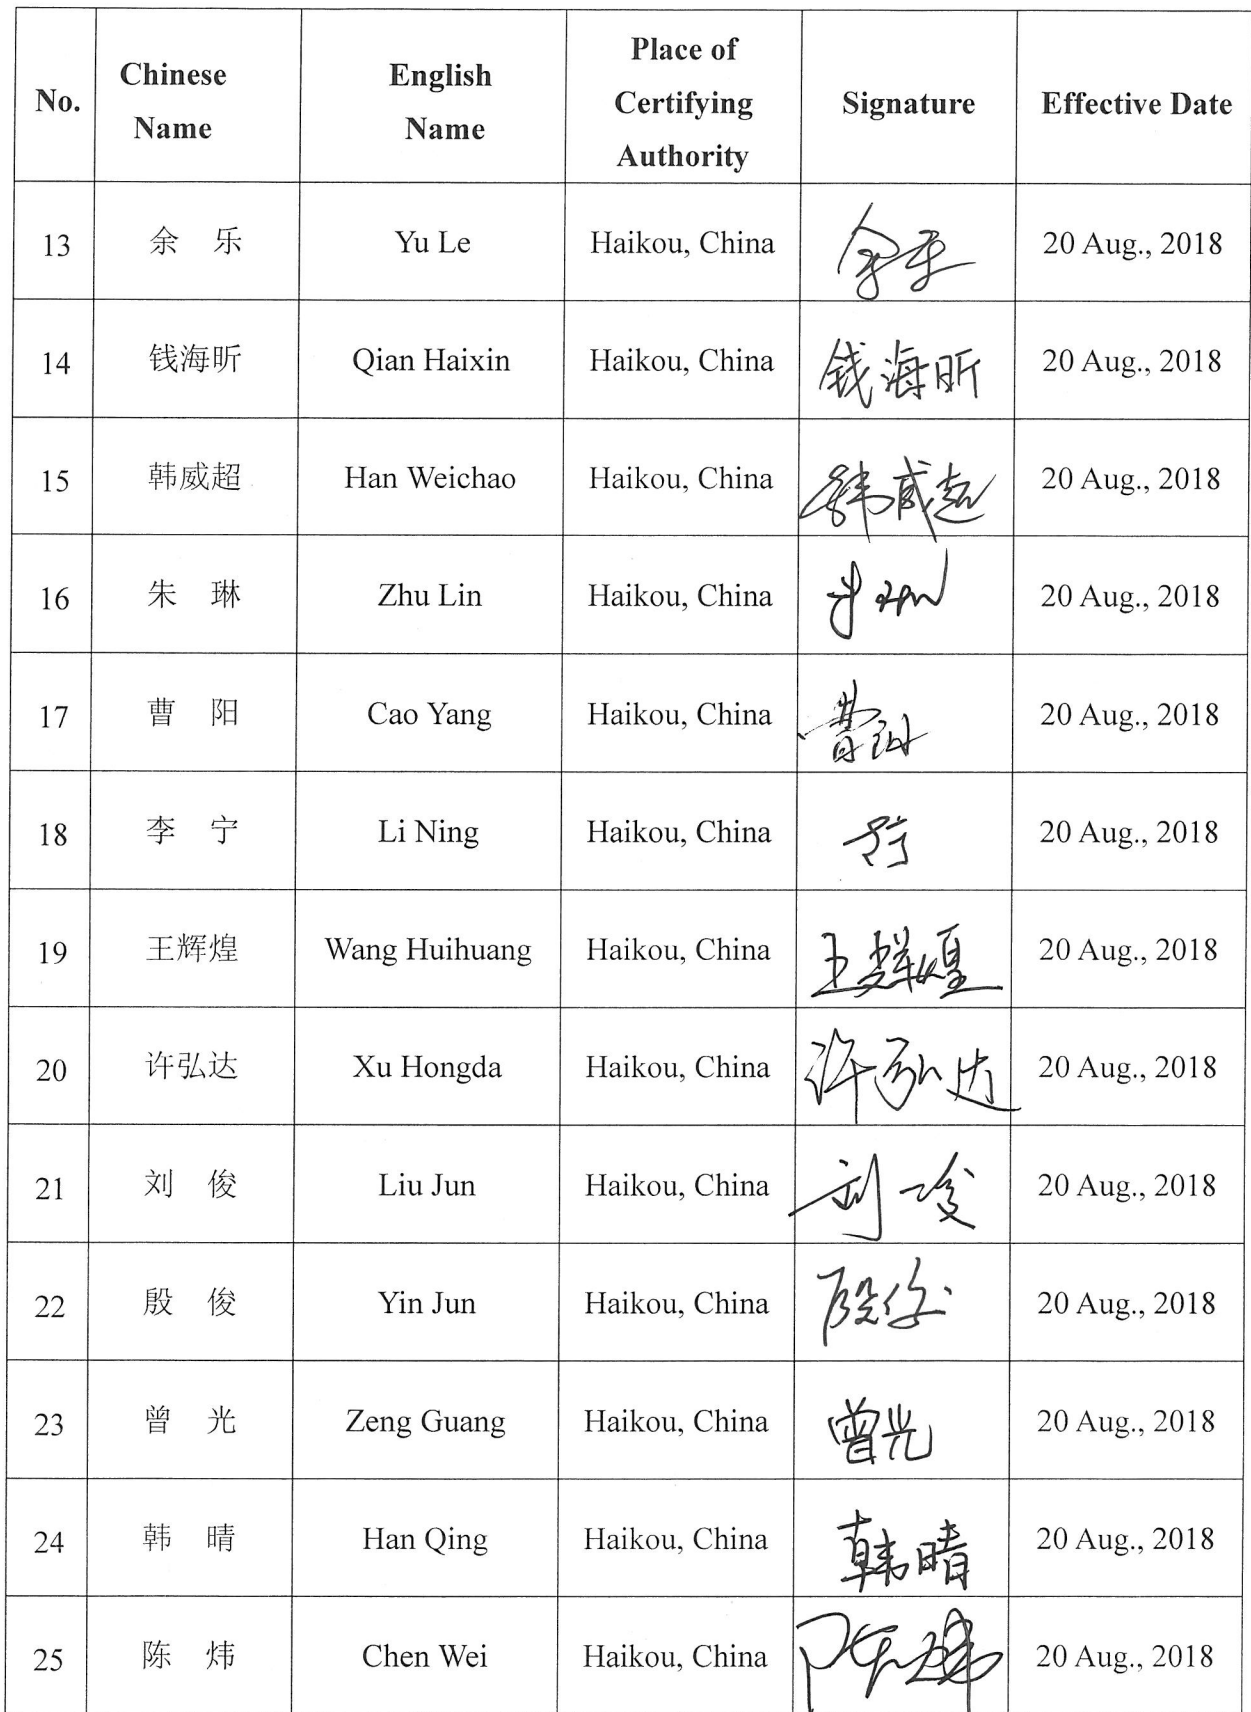 No. Chinese Name English Name Place of Certifying Authority Signature Effective Date
13 余 乐 Yu Le Haikou, China 余乐 20 Aug., 2018
14 钱海昕 Qian Haixin Haikou, China 钱海昕 20 Aug., 2018
15 韩威超 Han Weichao Haikou, China 韩威超 20 Aug., 2018
16 朱 琳 Zhu Lin Haikou, China 朱琳 20 Aug., 2018
17 曹 阳 Cao Yang Haikou, China 曹阳 20 Aug., 2018
18 李 宁 Li Ning Haikou, China 李宁 20 Aug., 2018
19 王辉煌 Wang Huihuang Haikou, China 王辉煌 20 Aug., 2018
20 许弘达 Xu Hongda Haikou, China 许弘达 20 Aug., 2018
21 刘 俊 Liu Jun Haikou, China 刘俊 20 Aug., 2018
22 殷 俊 Yin Jun Haikou, China 殷俊 20 Aug., 2018
23 曾 光 Zeng Guang Haikou, China 曾光 20 Aug., 2018
24 韩 晴 Han Qing Haikou, China 韩晴 20 Aug., 2018
25 陈 炜 Chen Wei Haikou, China 陈炜 20 Aug., 2018